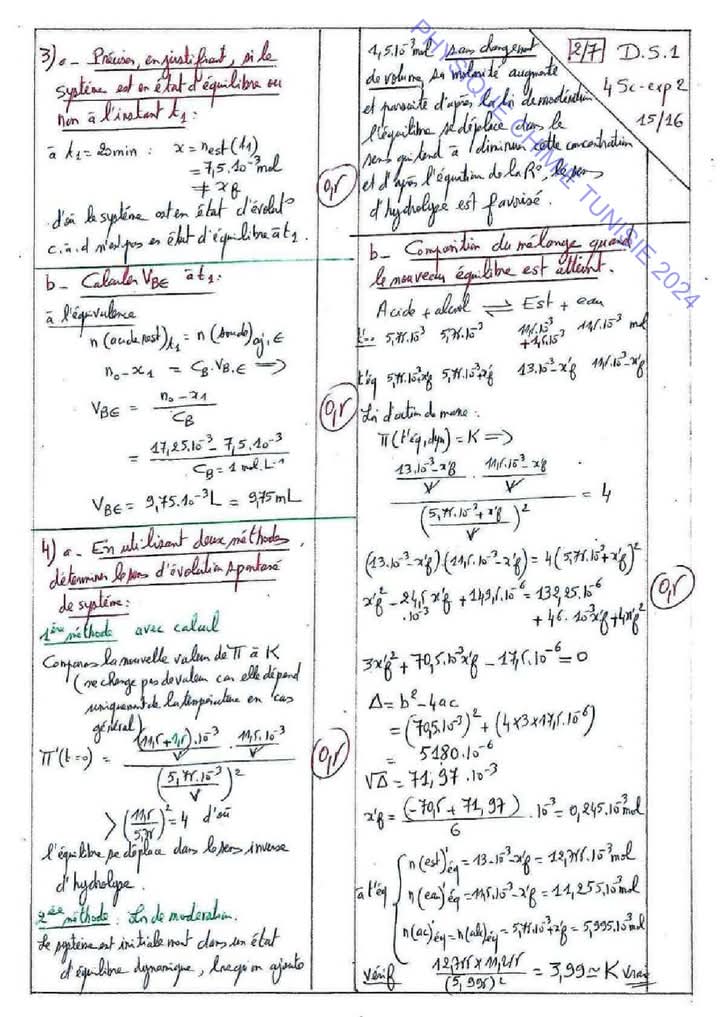 3) a - Préciser, en justifiant, si le
système est en état d'équilibre ou
non à l'instant t1 :
à t1 = 20 min : x = nest(t1)
= 7,5.10⁻³ mol
≠ xf
d'où le système est en état d'évolut°
c.à.d n'est pas en état d'équilibre à t1.
0,5
b - Calculer VBE à t1 :
à l'équivalence
n(acide rest)t1 = n(soude)aj, E
n0 - x1 = CB.VB.E ⟹
VBE = (n0 - x1) / CB
= (17,25.10⁻³ - 7,5.10⁻³) / (CB = 1 mol.L⁻¹)
VBE = 9,75.10⁻³ L = 9,75 mL
0,5
4) a - En utilisant deux méthodes,
déterminer le sens d'évolution spontané
de système :
1ère méthode avec calcul
Comparons la nouvelle valeur de Π à K
(ne change pas de valeur car elle dépend
uniquement de la température en cas
général)
Π'(t=0) = ((11,5+1,5).10⁻³ / V . 11,5.10⁻³ / V) / (5,75.10⁻³ / V)²
> (11,5 / 5,75)² = 4 d'où
l'équilibre se déplace dans le sens inverse
d'hydrolyse.
0,5
2ème méthode : Loi de modération.
Le système est initialement dans un état
d'équilibre dynamique, lorsqu'on ajoute
1,5.10⁻³ mol sans changement
de volume, sa molarité augmente
et par suite d'après la loi de modération
l'équilibre se déplace dans le
sens qui tend à diminuer cette concentration
et d'après l'équation de la R°, le sens
d'hydrolyse est favorisé.
2/7 D.S.1
4 Sc-exp 2
15/16
b - Composition du mélange quand
le nouveau équilibre est atteint.
Acide + alcool ⇌ Est + eau
t'=0 5,75.10⁻³ 5,75.10⁻³ 11,5.10⁻³ 11,5.10⁻³ mol
+1,5.10⁻³
t'éq 5,75.10⁻³+x'f 5,75.10⁻³+x'f 13.10⁻³-x'f 11,5.10⁻³-x'f
Loi d'action de masse :
Π(t'éq, dyn) = K ⟹
((13.10⁻³-x'f) / V . (11,5.10⁻³-x'f) / V) / ((5,75.10⁻³+x'f) / V)² = 4
(13.10⁻³-x'f).(11,5.10⁻³-x'f) = 4(5,75.10⁻³+x'f)²
x'f² - 24,5.10⁻³ x'f + 149,5.10⁻⁶ = 132,25.10⁻⁶
+ 46.10⁻³x'f + 4x'f²
0,5
3x'f² + 70,5.10⁻³x'f - 17,5.10⁻⁶ = 0
Δ = b² - 4ac
= (70,5.10⁻³)² + (4×3×17,5.10⁻⁶)
= 5180.10⁻⁶
√Δ = 71,97.10⁻³
x'f = (-70,5 + 71,97) / 6 . 10⁻³ = 0,245.10⁻³ mol
à t'éq
n(est)'éq = 13.10⁻³-x'f = 12,755.10⁻³ mol
n(eau)'éq = 11,5.10⁻³-x'f = 11,255.10⁻³ mol
n(ac)'éq = n(alc)'éq = 5,75.10⁻³+x'f = 5,995.10⁻³ mol
vérif (12,755 × 11,255) / (5,995)² = 3,99 ≃ K vraie
PHYSIQUE CHIMIE TUNISIE 2024